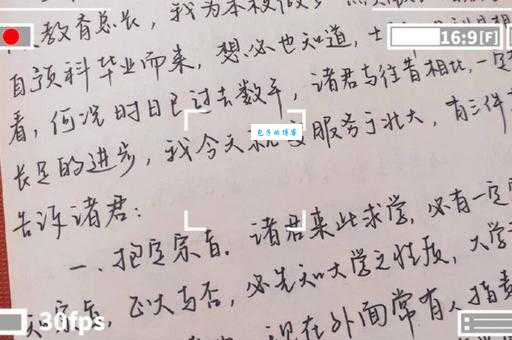 教育总长，我为本校做
自预科毕业而来，想必也知道，士
看，何况时日已过去数年，诸君与往昔相比，一定
长足的进步，我今天就 服务于北大，有三件
告诉诸君：
一、抱定宗旨。诸君来此求学，必有一定
宗旨，正大与否，必先知大学之性质，大学
现在外面常有人指责
16:9[F]
包子的博客
30fps